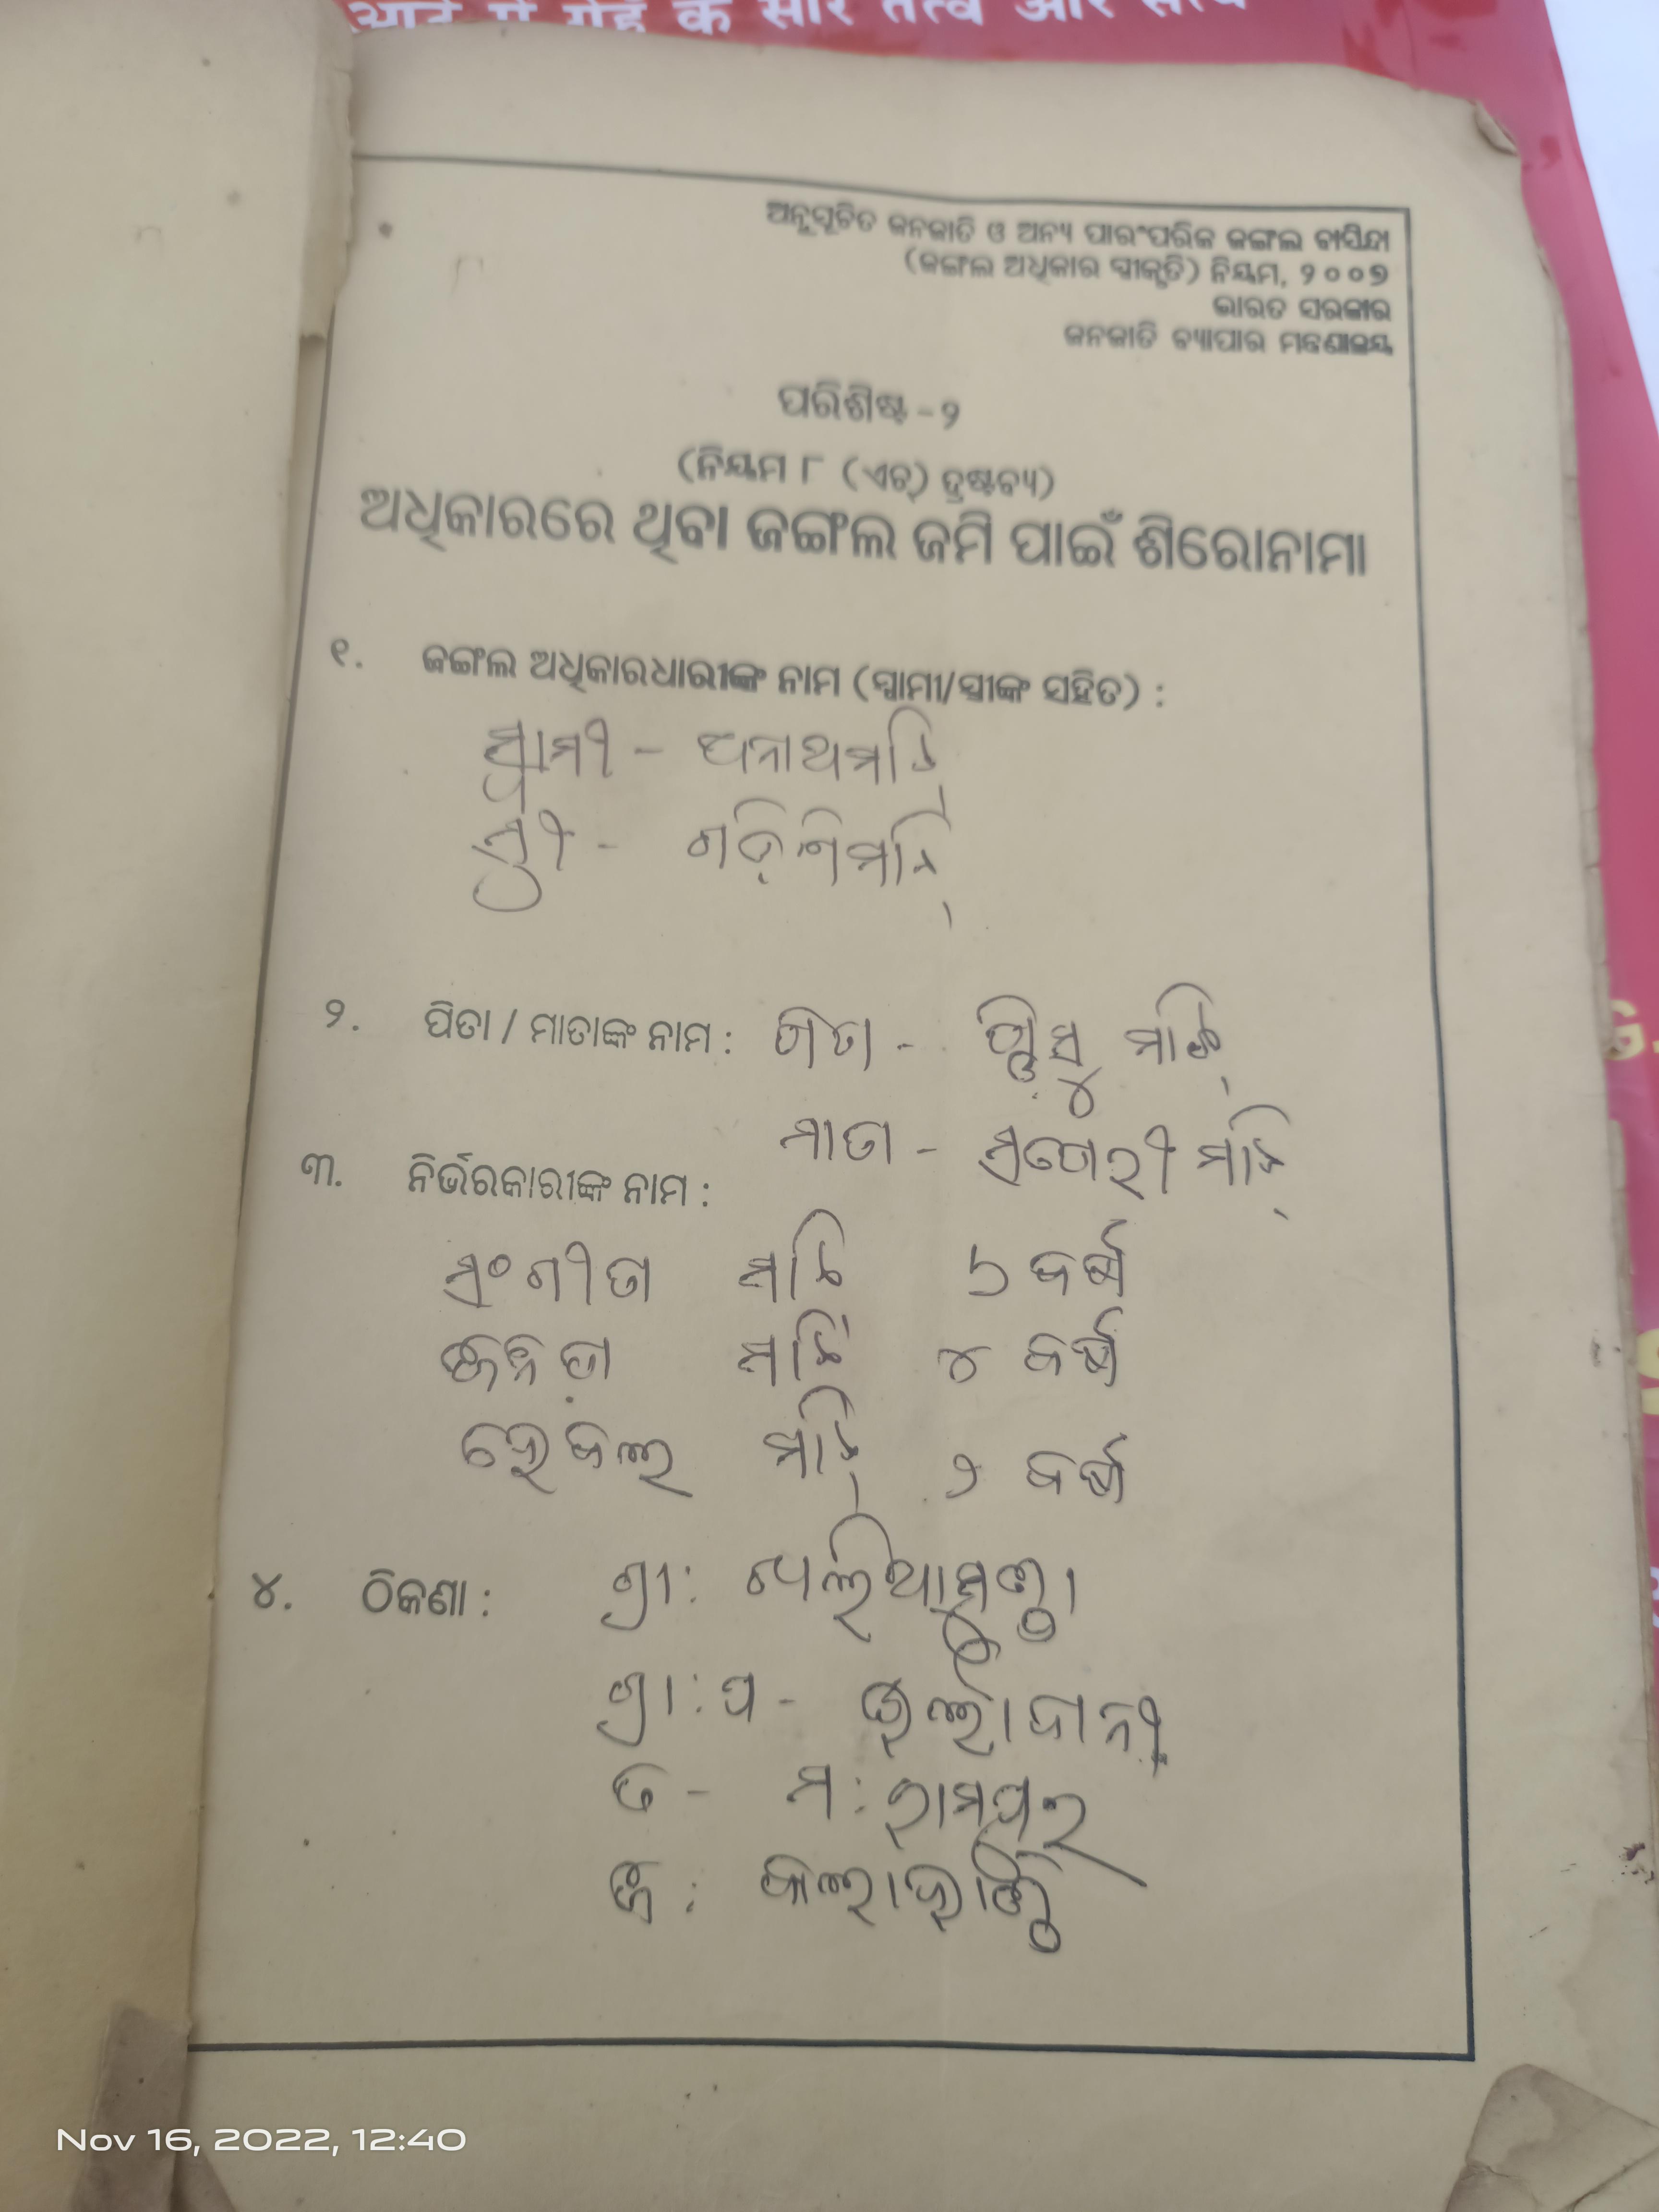 आटे में गेहूँ के सार तत्व और सत्व
ଅନୁସୂଚିତ ଜନଜାତି ଓ ଅନ୍ୟ ପାରଂପରିକ ଜଙ୍ଗଲ ବାସିନ୍ଦା
(ଜଙ୍ଗଲ ଅଧିକାର ସ୍ୱୀକୃତି) ନିୟମ, ୨୦୦୭
ଭାରତ ସରକାର
ଜନଜାତି ବ୍ୟାପାର ମନ୍ତ୍ରଣାଳୟ
ପରିଶିଷ୍ଟ - ୨
(ନିୟମ ୮ (ଏଚ୍) ଦ୍ରଷ୍ଟବ୍ୟ)
ଅଧିକାରରେ ଥିବା ଜଙ୍ଗଲ ଜମି ପାଇଁ ଶିରୋନାମା
୧. ଜଙ୍ଗଲ ଅଧିକାରଧାରୀଙ୍କ ନାମ (ସ୍ୱାମୀ/ସ୍ତ୍ରୀଙ୍କ ସହିତ) :
ସ୍ୱାମୀ - ଅନାଥ ମାଝି
ସ୍ତ୍ରୀ - ମାଝି
୨. ପିତା / ମାତାଙ୍କ ନାମ : ପିତା - ମାଝି
ମାତା - ମାଝି
୩. ନିର୍ଭରକାରୀଙ୍କ ନାମ :
ସଂଗୀତା ମାଝି ୬ ବର୍ଷ
ମାଝି ୪ ବର୍ଷ
ମାଝି ୨ ବର୍ଷ
୪. ଠିକଣା : ଗ୍ରା:
ଗ୍ରା: ପ -
ତ - ମ: ରାମପୁର
ଜି: କଳାହାଣ୍ଡି
Nov 16, 2022, 12:40